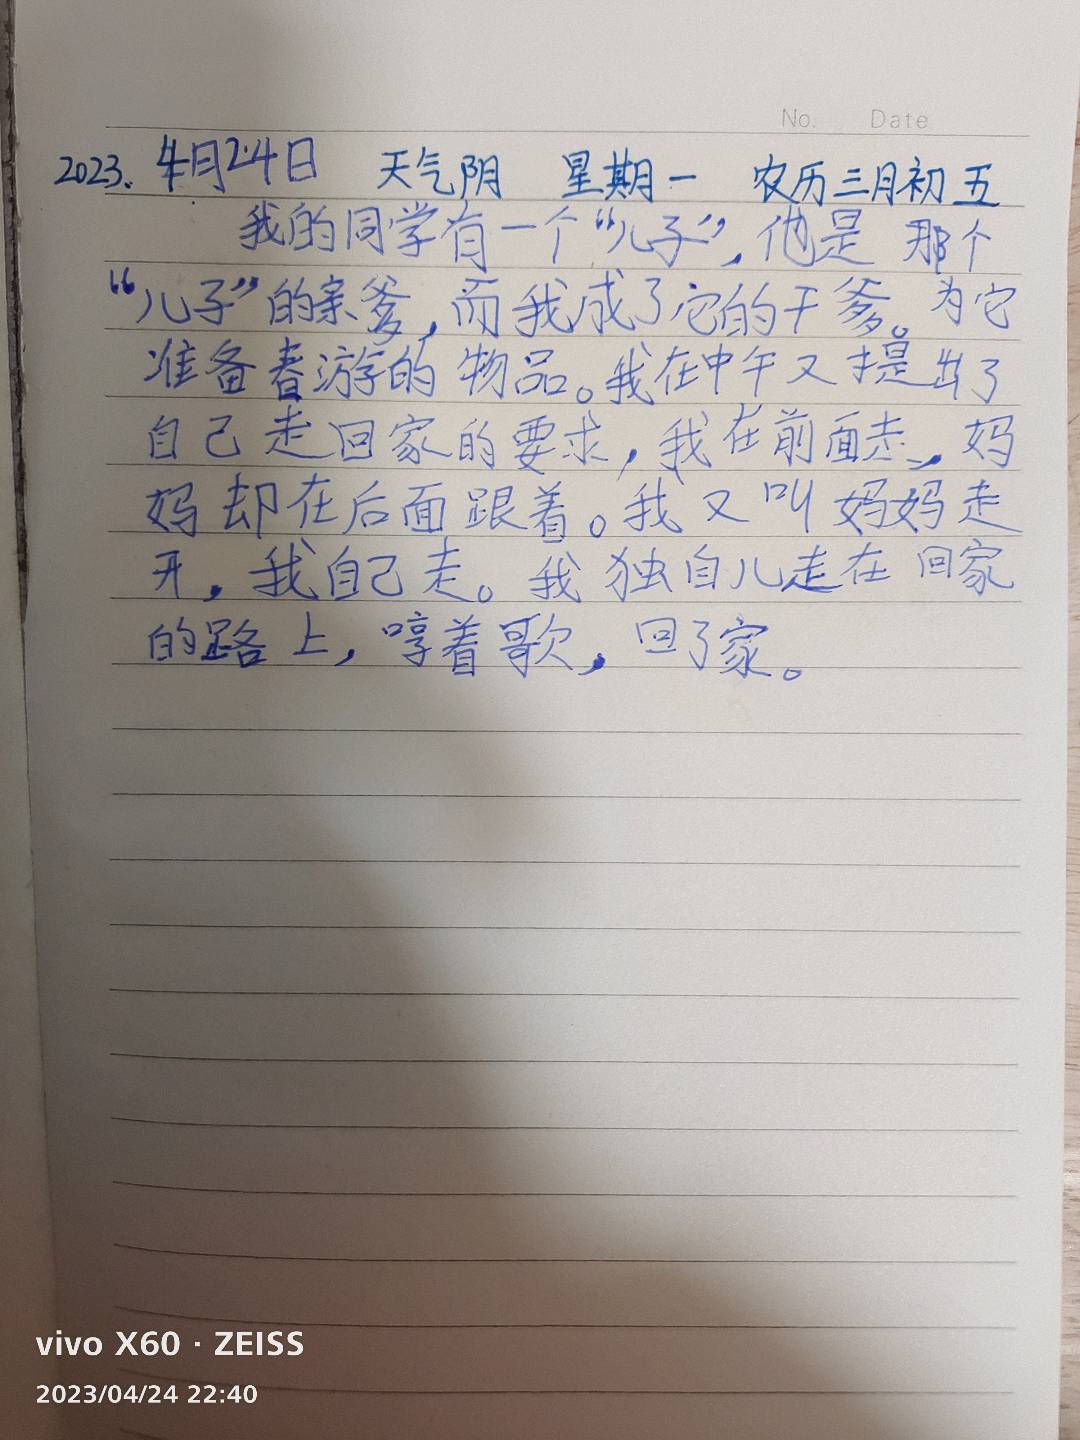 No. Date
2023. 4月24日 天气阴 星期一 农历三月初五
我的同学有一个“儿子”,他是那个
“儿子”的亲爹,而我成了它的干爹。为它
准备春游的物品。我在中午又提出了
自己走回家的要求,我在前面走,妈
妈却在后面跟着。我又叫妈妈走
开,我自己走。我独自儿走在回家
的路上,哼着歌,回了家。
vivo X60 · ZEISS
2023/04/24 22:40